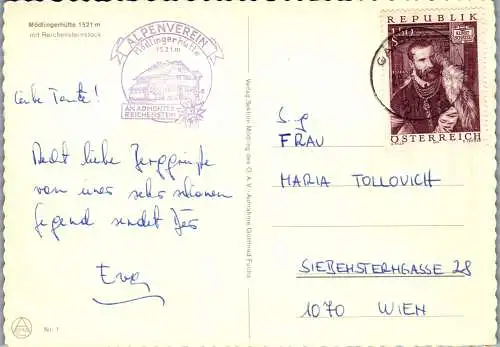 Mödlingerhütte 1521 m
mit Reichensteinstock
ALPENVEREIN
Mödlingerhütte
1521 m
AM ADMONTER
REICHENSTEIN
Liebe Tante!
Recht liebe Berggrüße
von einer sehr schönen
Gegend sendet Dir
Eva
Nr. 1
Verlag Sektion Mödling des Ö.A.V. - Aufnahme Gottfried Fuchs
REPUBLIK
1,50
ÖSTERREICH
GA
S.g
FRAU
MARIA TOLLOVICH
SIEBENSTERNGASSE 28
1070 WIEN